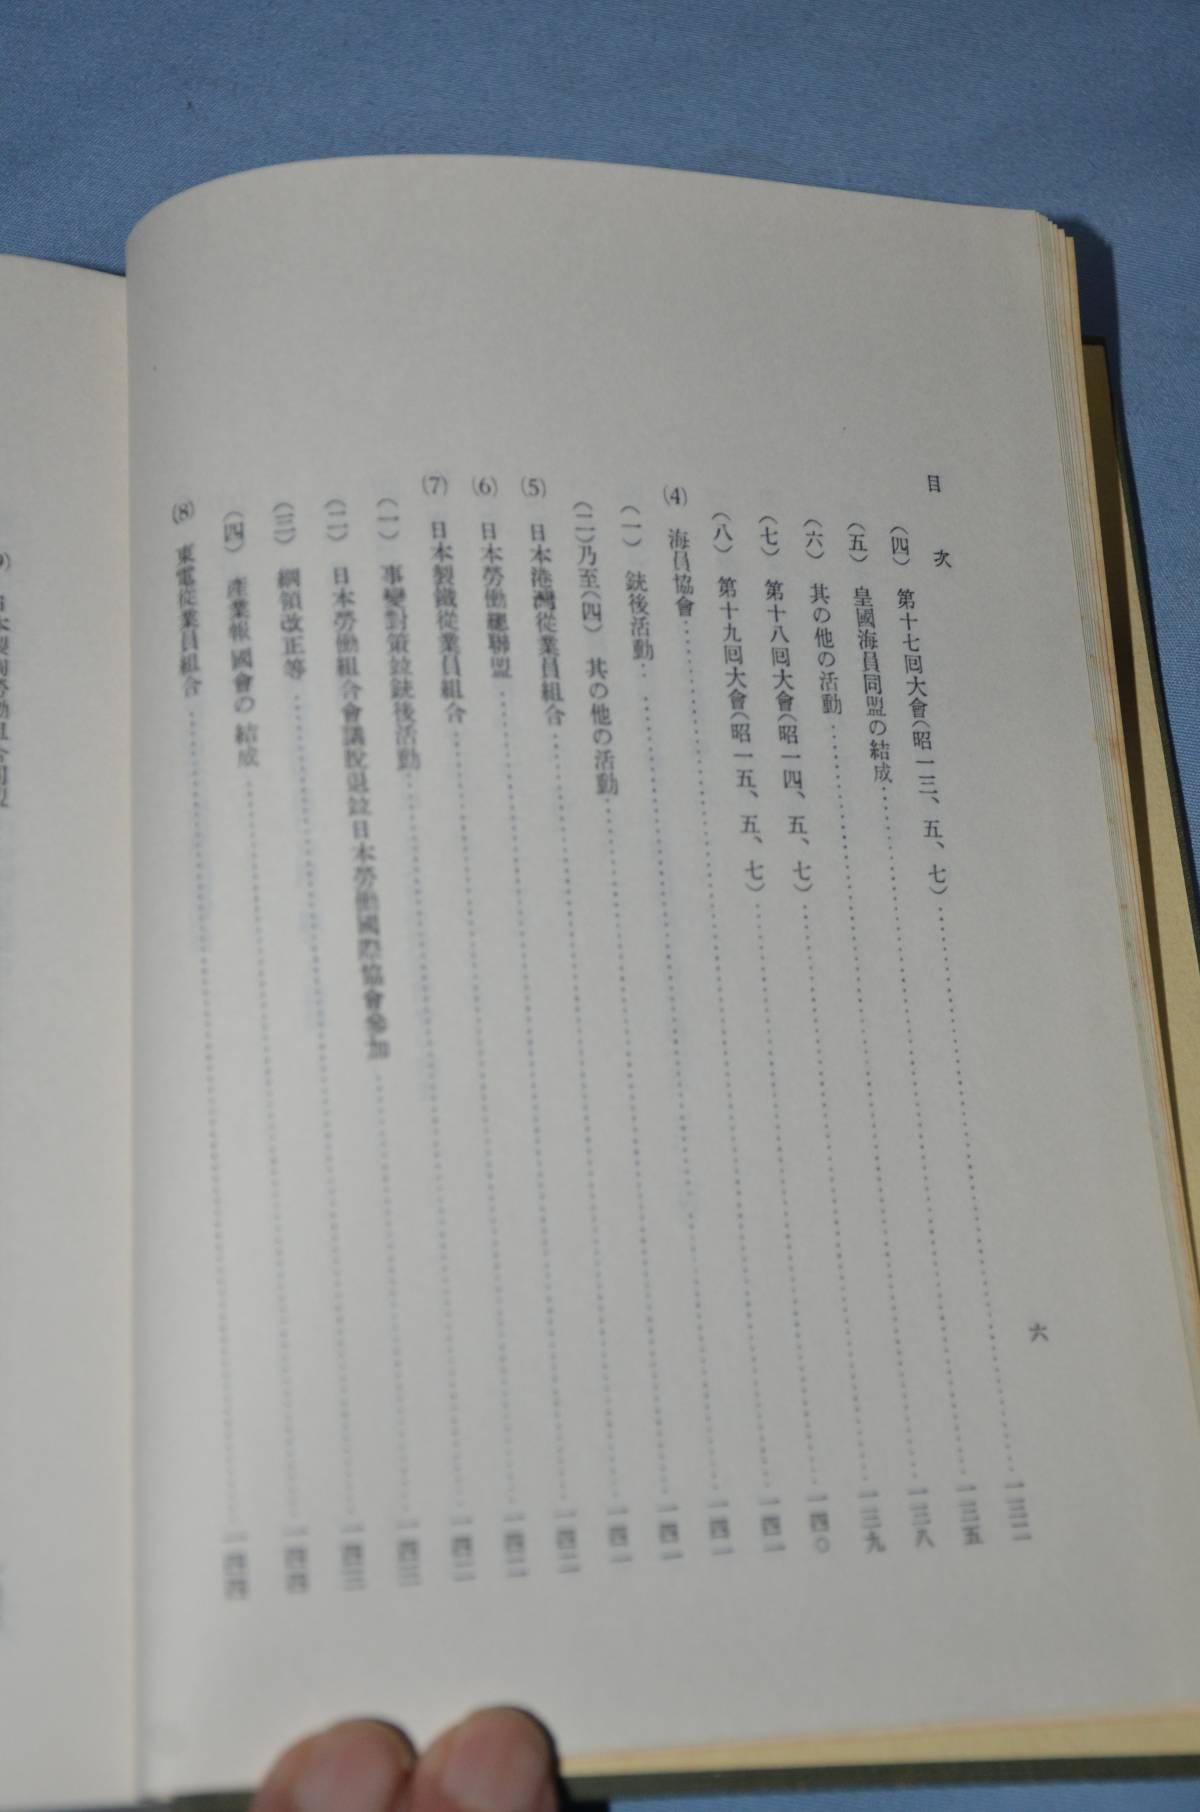 目次
六
(四) 第十七回大會(昭一三、五、七)…一三二
(五) 皇國海員同盟の結成…一三五
(六) 其の他の活動…一三八
(七) 第十八回大會(昭一四、五、七)…一三九
(八) 第十九回大會(昭一五、五、七)…一四〇
(4) 海員協會…一四一
(一) 銃後活動…一四一
(二)乃至(四) 其の他の活動…一四一
(5) 日本港灣從業員組合…一四一
(6) 日本勞働總聯盟…一四二
(7) 日本製鐵從業員組合…一四二
(一) 事變對策竝銃後活動…一四二
(二) 日本勞働組合會議脫退竝日本勞働國際協會參加…一四三
(三) 綱領改正等…一四三
(四) 産業報國會の結成…一四四
(8) 東電從業員組合…一四四